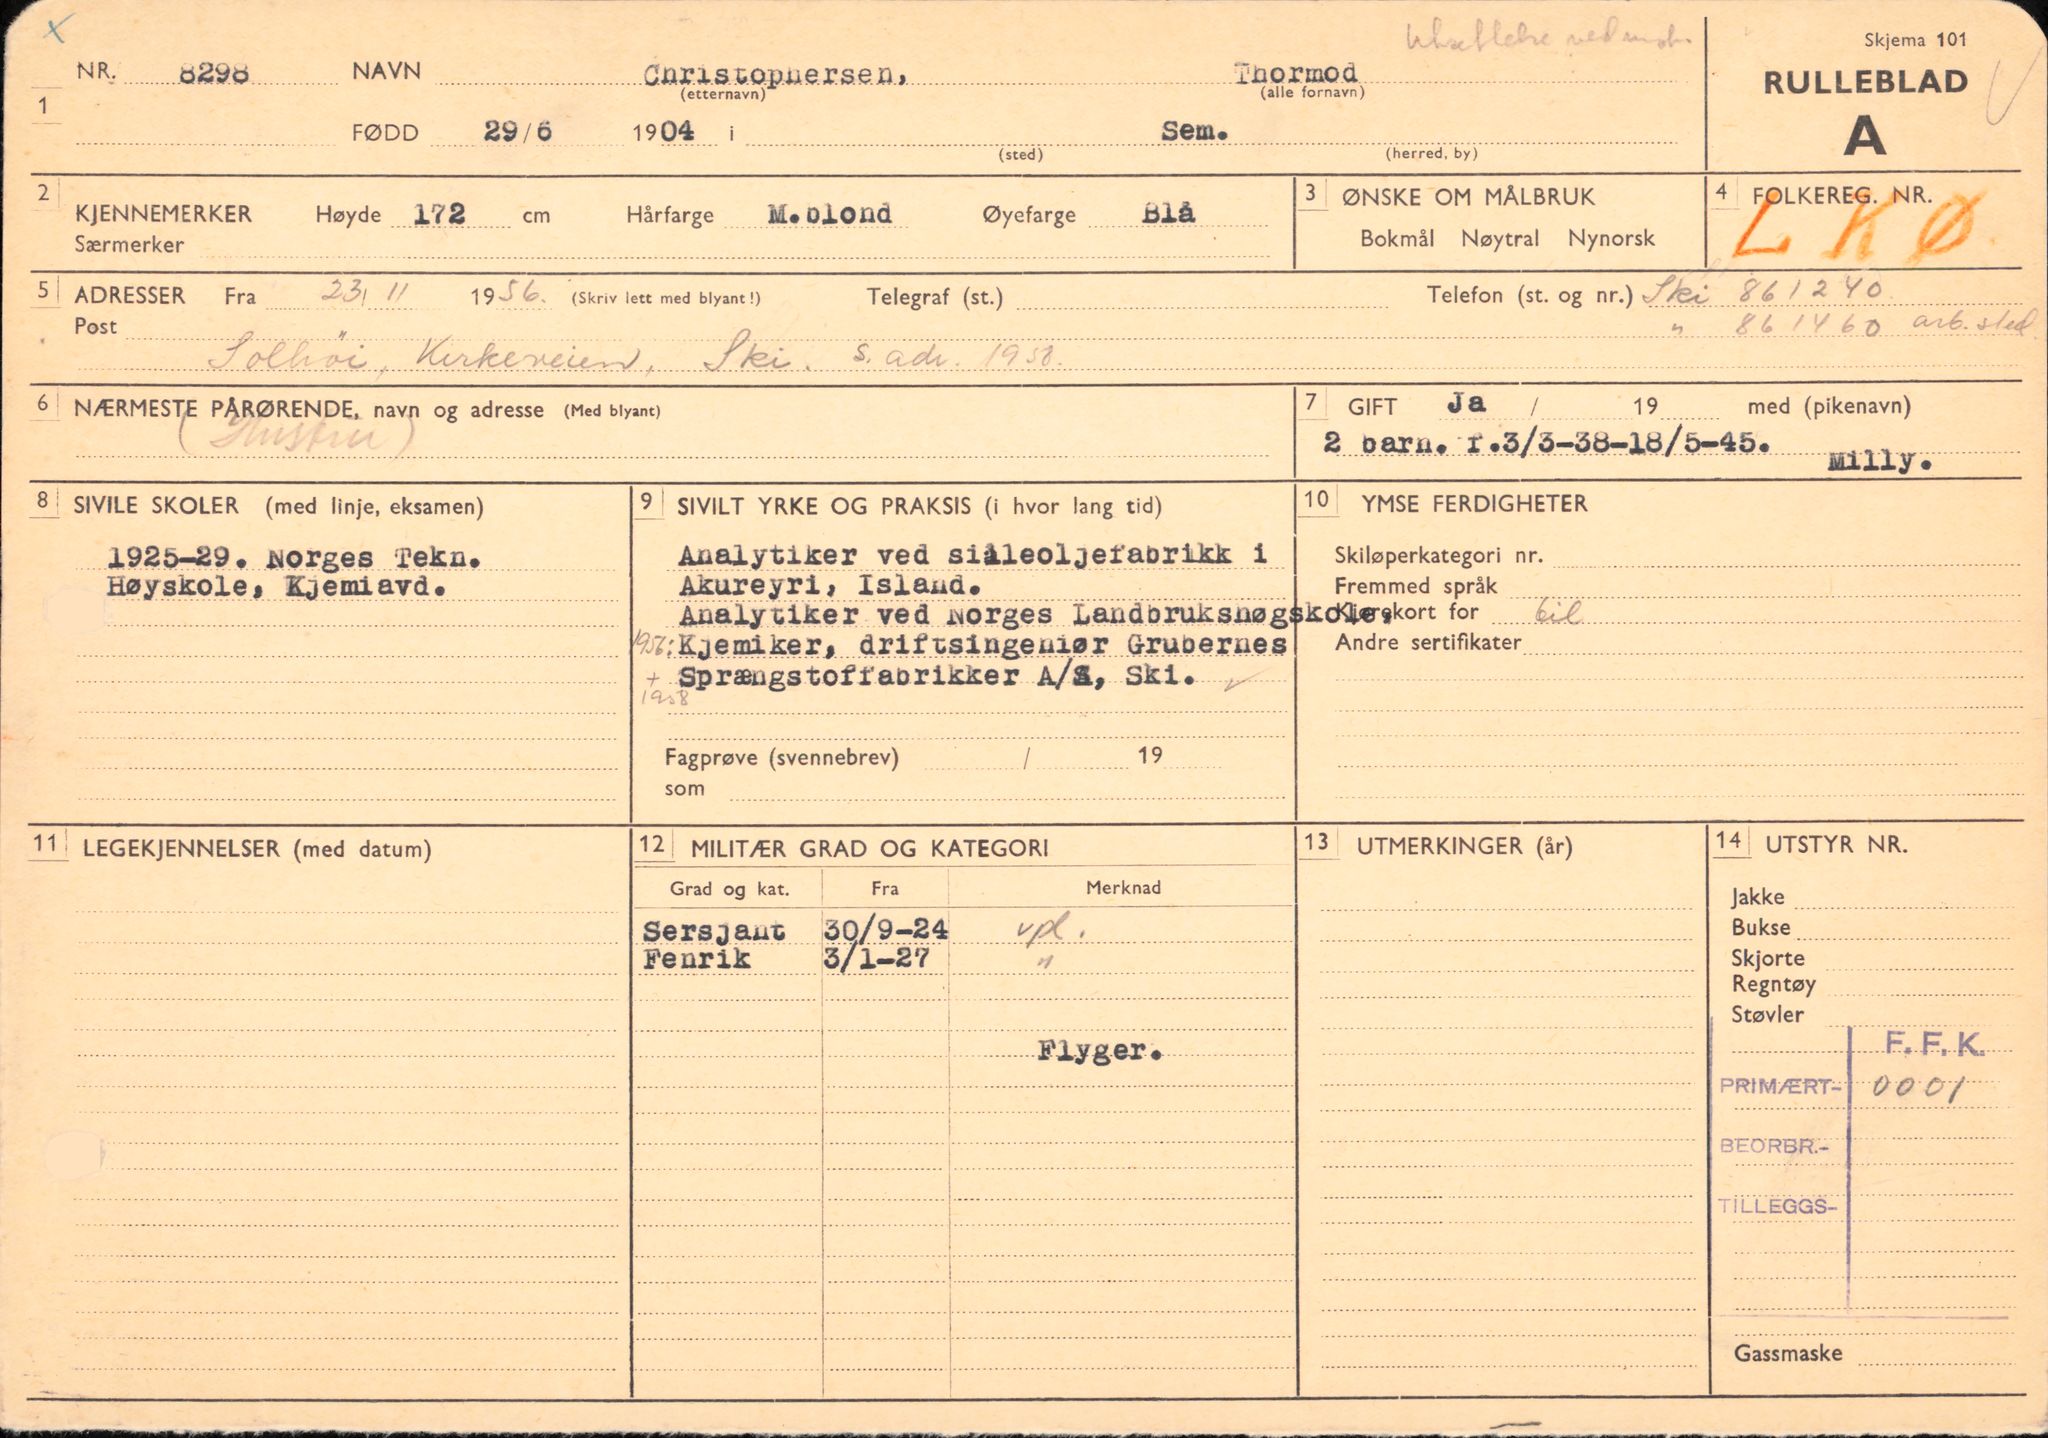 x
Skjema 101
NR. 8298 NAVN Christophersen, Thormod
(etternavn) (alle fornavn)
RULLEBLAD
A
1
FØDD 29/6 1904 i Sem.
(sted) (herred, by)
2 KJENNEMERKER Høyde 172 cm Hårfarge M.blond Øyefarge Blå
Særmerker
3 ØNSKE OM MÅLBRUK
Bokmål Nøytral Nynorsk
4 FOLKEREG. NR.
L K Ø
5 ADRESSER Fra 23/11 1956. (Skriv lett med blyant!) Telegraf (st.) Telefon (st. og nr.) Ski 861240
Post " 861460 arb.sted
Solhöi, Kirkeveien, Ski. s. adr. 1958.
6 NÆRMESTE PÅRØRENDE, navn og adresse (Med blyant)
(Hustru)
7 GIFT Ja / 19 med (pikenavn)
2 barn. f.3/3-38-18/5-45.
Milly.
8 SIVILE SKOLER (med linje, eksamen)
1925-29. Norges Tekn.
Høyskole, Kjemiavd.
9 SIVILT YRKE OG PRAKSIS (i hvor lang tid)
Analytiker ved silleoljefabrikk i
Akureyri, Island.
Analytiker ved Norges Landbrukshøgskole,
1956: Kjemiker, driftsingeniør Grubernes
+ Sprængstoffabrikker A/S, Ski.
1958
Fagprøve (svennebrev) / 19
som
10 YMSE FERDIGHETER
Skiløperkategori nr.
Fremmed språk
Kjørekort for bil
Andre sertifikater
11 LEGEKJENNELSER (med datum)
12 MILITÆR GRAD OG KATEGORI
Grad og kat. Fra Merknad
Sersjant 30/9-24 vpl.
Fenrik 3/1-27 "
Flyger.
13 UTMERKINGER (år)
14 UTSTYR NR.
Jakke
Bukse
Skjorte
Regntøy
Støvler
F. F. K.
PRIMÆRT- 0001
BEORBR.-
TILLEGGS-
Gassmaske